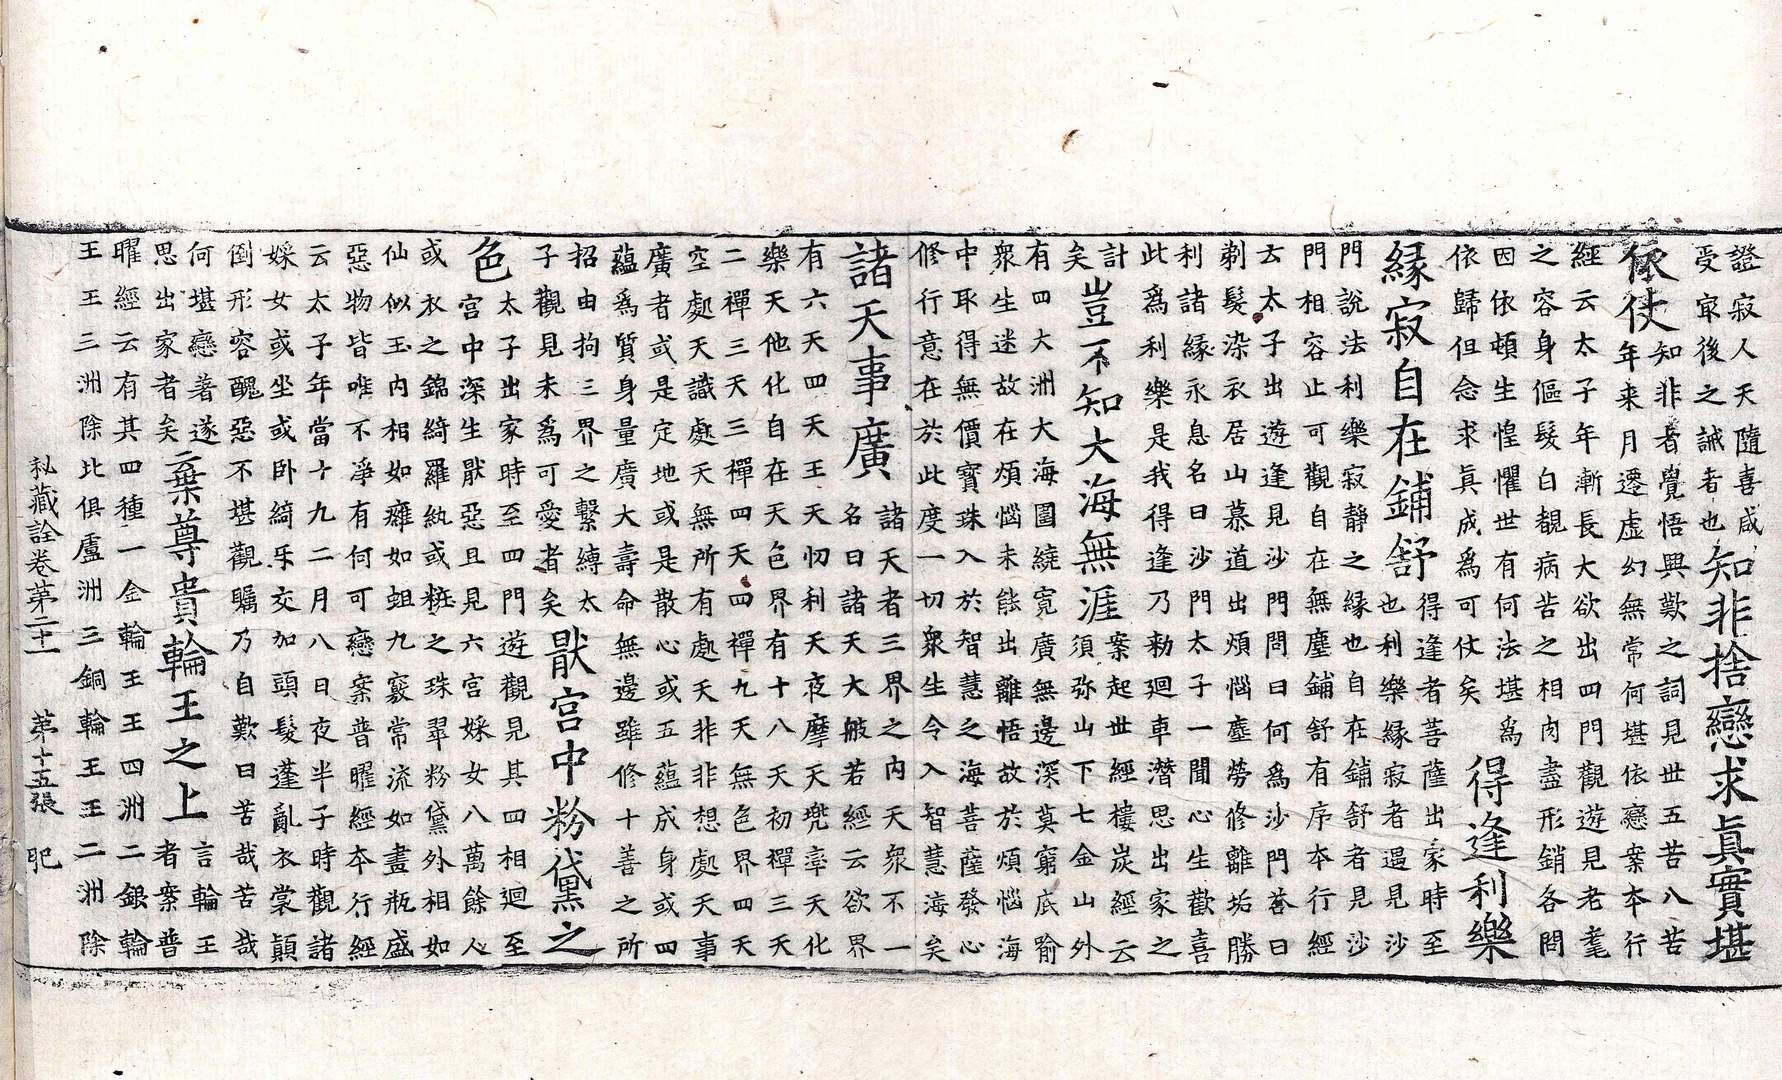 證寂人天隨喜咸
受㝡後之誡者也
知非捨戀求眞實堪
依仗
知非者覺悟興歎之詞見世五苦八苦
年来月遷虛幻無常何堪依戀案本行
經云太子年漸長大欲出四門觀遊見老耄
之容身傴髮白覩病苦之相肉盡形銷各閉
因依頓生惶懼世有何法堪爲
依歸但念求眞成爲可仗矣
得逢利樂
縁寂自在鋪舒
得逢者菩薩出家時至
也利樂縁寂者遇見沙
門說法利樂寂靜之縁也自在鋪舒者見沙
門相容止可觀自在無塵鋪舒有序本行經
云太子出遊逢見沙門問曰何爲沙門荅曰
剃髮染衣居山慕道出煩惱塵勞修離垢勝
利諸縁永息名曰沙門太子一聞心生歡喜
此爲利樂是我得逢乃勑廻車潛思出家之
計
矣
豈不知大海無涯
案起世經樓炭經云
須弥山下七金山外
有四大洲大海圍繞寛廣無邊深莫窮底喻
衆生迷故在煩惱未能出離悟故於煩惱海
中取得無價寶珠入於智慧之海菩薩發心
修行意在於此度一切衆生令入智慧海矣
諸天事廣
諸天者三界之内天衆不一
名曰諸天大般若經云欲界
有六天四天王天忉利天夜摩天兜率天化
樂天他化自在天色界有十八天初禪三天
二禪三天三禪四天四禪九天無色界四天
空處天識處天無所有處天非非想處天事
廣者或是定地或是散心或五蘊成身或四
蘊爲質身量廣大壽命無邊雖修十善之所
招由拘三界之繫縛太
子觀見未爲可愛者矣
猒宮中粉黛之
色
太子出家時至四門遊觀見其四相廻至
宮中深生猒惡且見六宮婇女八萬餘人
或衣之錦綺羅紈或粧之珠翠粉黛外相如
仙似玉内相如癰如蛆九竅常流如畫瓶盛
惡物皆唯不淨有何可戀案普曜經本行經
云太子年當十九二月八日夜半子時觀諸
婇女或坐或卧綺乐交加頭髮蓬亂衣裳顛
倒形容醜惡不堪觀矚乃自歎曰苦哉苦哉
何堪戀著遂
思出家者矣
棄尊貴輪王之上
言輪王
者案普
曜經云有其四種一金輪王王四洲二銀輪
王王三洲除北俱盧洲三銅輪王王二洲除
秘藏詮卷第二十一 第十五張 肥